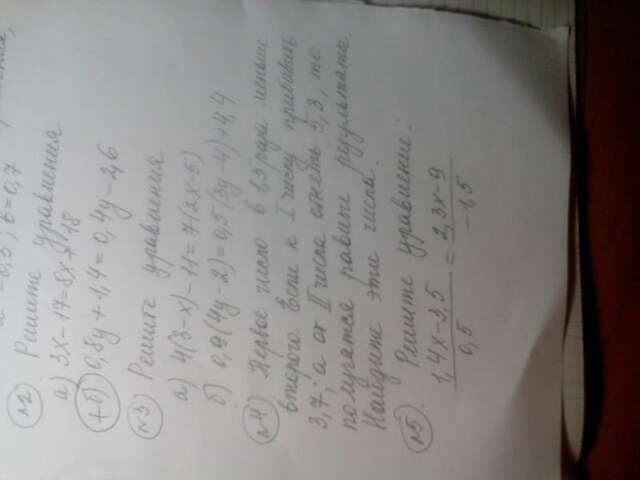 в=0,7
№2 Решите уравнения
а) 3х-17=8х+18
+б) 0,8у+1,4=0,4у-2,6
№3 Решите уравнения
а) 4(3-х)-11=7(2х-5)
б) 0,9(4у-2)=0,5(3у-4)+4,4
№4 Первое число в 1,5 раза меньше
второго. Если к I числу прибавить
3,7, а от II числа отнять 5,3, то
получатся равные результаты.
Найдите эти числа.
№5. Решите уравнение:
1,4х-3,5 = 2,3х-9
0,5 -1,5